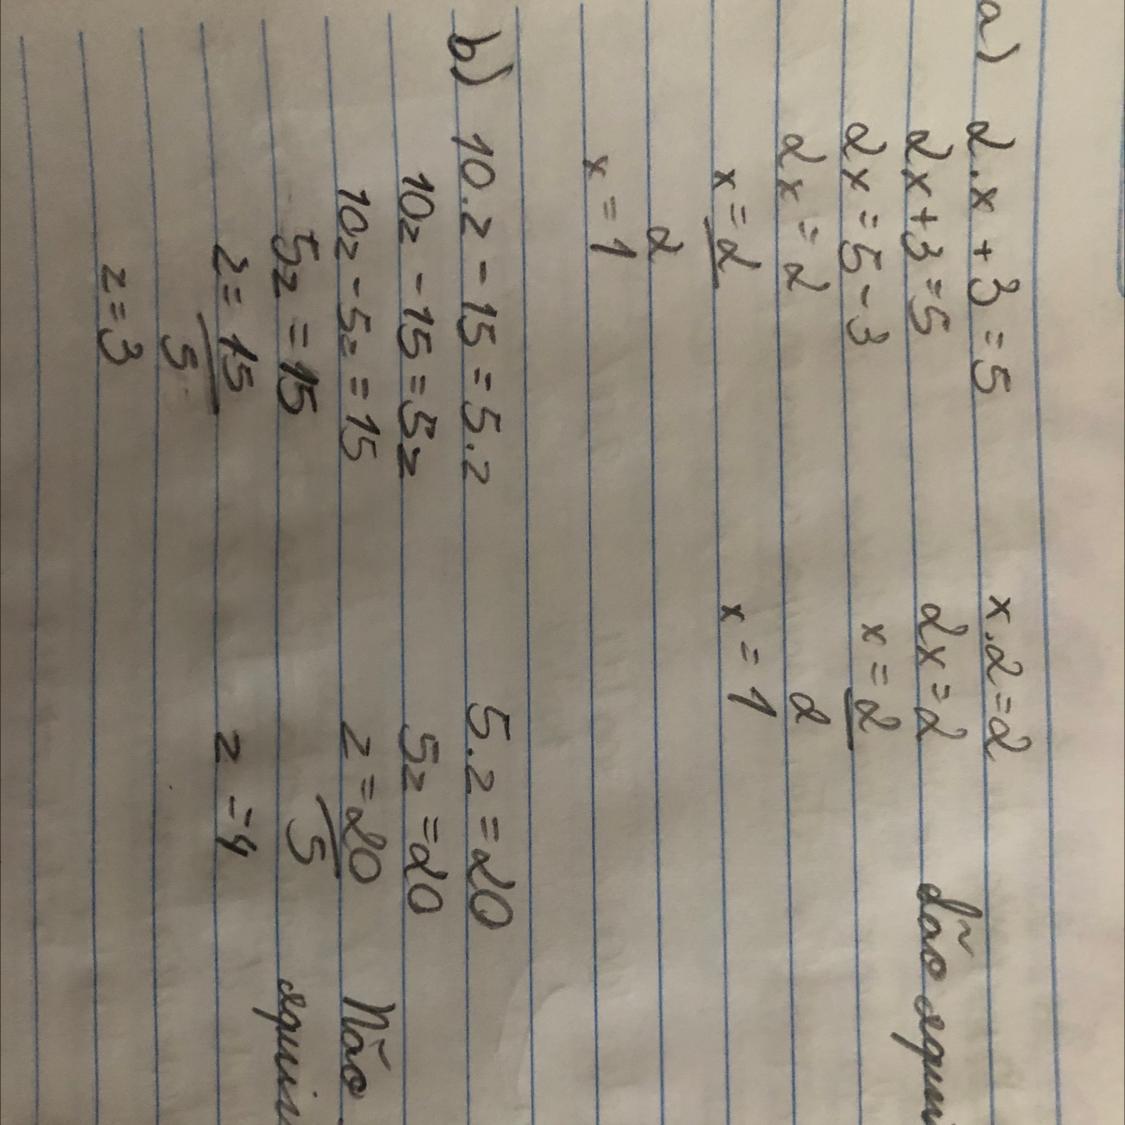 a) 2.x + 3 = 5
2x + 3 = 5
2x = 5 - 3
2x = 2
x = 2
2
x = 1
x.2 = 2
2x = 2
x = 2
2
x = 1
São equi
b) 10.z - 15 = 5.z
10z - 15 = 5z
10z - 5z = 15
5z = 15
z = 15
5
z = 3
5.z = 20
5z = 20
z = 20
5
z = 4
Não
equiv